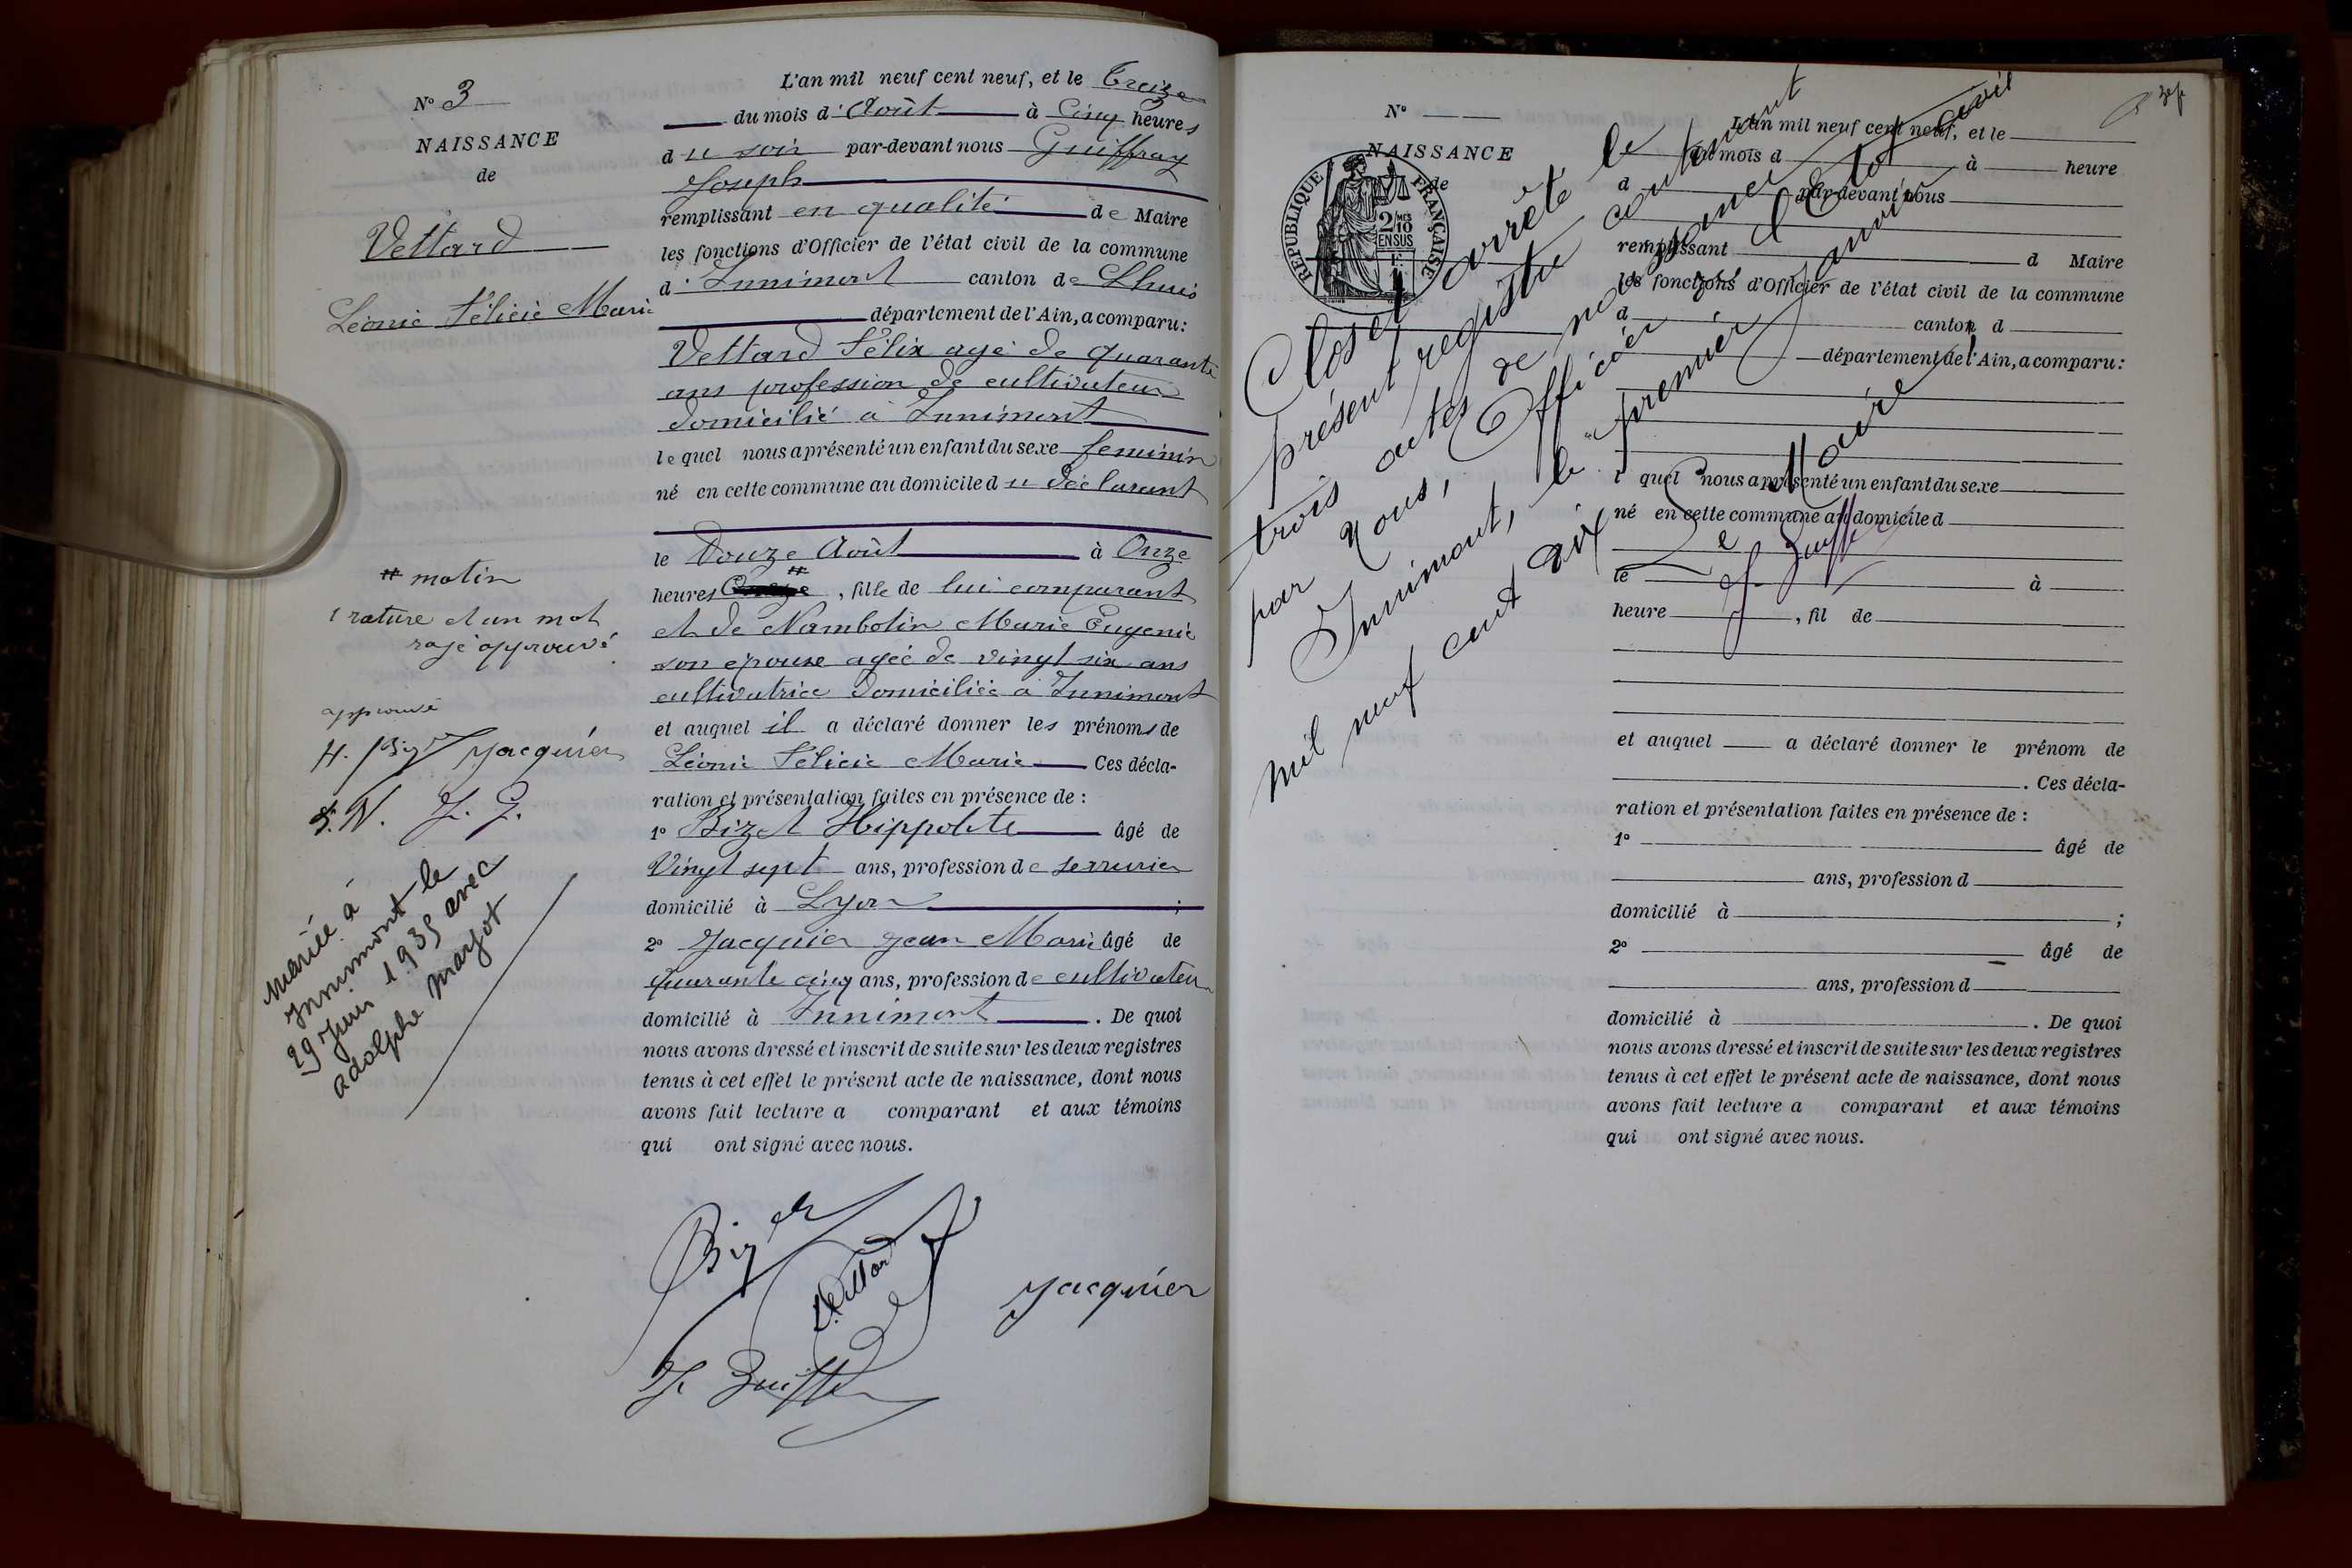 N° 3
NAISSANCE
de
Vettard
Léonie Félicie Marie
# matin
1 rature et un mot
rayé approuvé
approuvé
H. Bizet Jacquier
J. G.
mariée à
Innimont le
29 Juin 1935 avec
adolphe Margot
L'an mil neuf cent neuf, et le Treize
du mois d'Août à Cinq heures
du soir par-devant nous Guiffray
Joseph
remplissant en qualité de Maire
les fonctions d'Officier de l'état civil de la commune
d'Innimont canton de Lhuis
département de l'Ain, a comparu:
Vettard Félix agé de quarante
ans profession de cultivateur
domicilié à Innimont
lequel nous a présenté un enfant du sexe feminin
né en cette commune au domicile du déclarant
le Douze Août à Onze
heures #, fille de lui comparant
et de Nambotin Marie Eugenie
son epouse agée de vingt six ans
cultivatrice domiciliée à Innimont
et auquel il a déclaré donner les prénoms de
Léonie Félicie Marie Ces décla-
ration et présentation faites en présence de :
1° Bizet Hippolyte âgé de
Vingt sept ans, profession de serrurier
domicilié à Lyon ;
2° Jacquier Jean Marie âgé de
quarante cinq ans, profession de cultivateur
domicilié à Innimont . De quoi
nous avons dressé et inscrit de suite sur les deux registres
tenus à cet effet le présent acte de naissance, dont nous
avons fait lecture a comparant et aux témoins
qui ont signé avec nous.
Bizet
Vettard
Jacquier
J. Guiffray
N°
NAISSANCE
de
REPUBLIQUE FRANÇAISE
2/10 MES
EN SUS
Clos et arrêté le
présent registre contenant
trois actes de naissance
par Nous, Officier d'Etat civil
Innimont, le premier Janvier
mil neuf cent dix
Le Maire
J. Guiffray
L'an mil neuf cent neuf, et le
du mois d à heure
d par-devant nous
remplissant d Maire
les fonctions d'Officier de l'état civil de la commune
d canton d
département de l'Ain, a comparu:
l quel nous a présenté un enfant du sexe
né en cette commune au domicile d
le à
heure , fil de
et auquel a déclaré donner le prénom de
. Ces décla-
ration et présentation faites en présence de :
1° âgé de
ans, profession d
domicilié à ;
2° âgé de
ans, profession d
domicilié à . De quoi
nous avons dressé et inscrit de suite sur les deux registres
tenus à cet effet le présent acte de naissance, dont nous
avons fait lecture a comparant et aux témoins
qui ont signé avec nous.